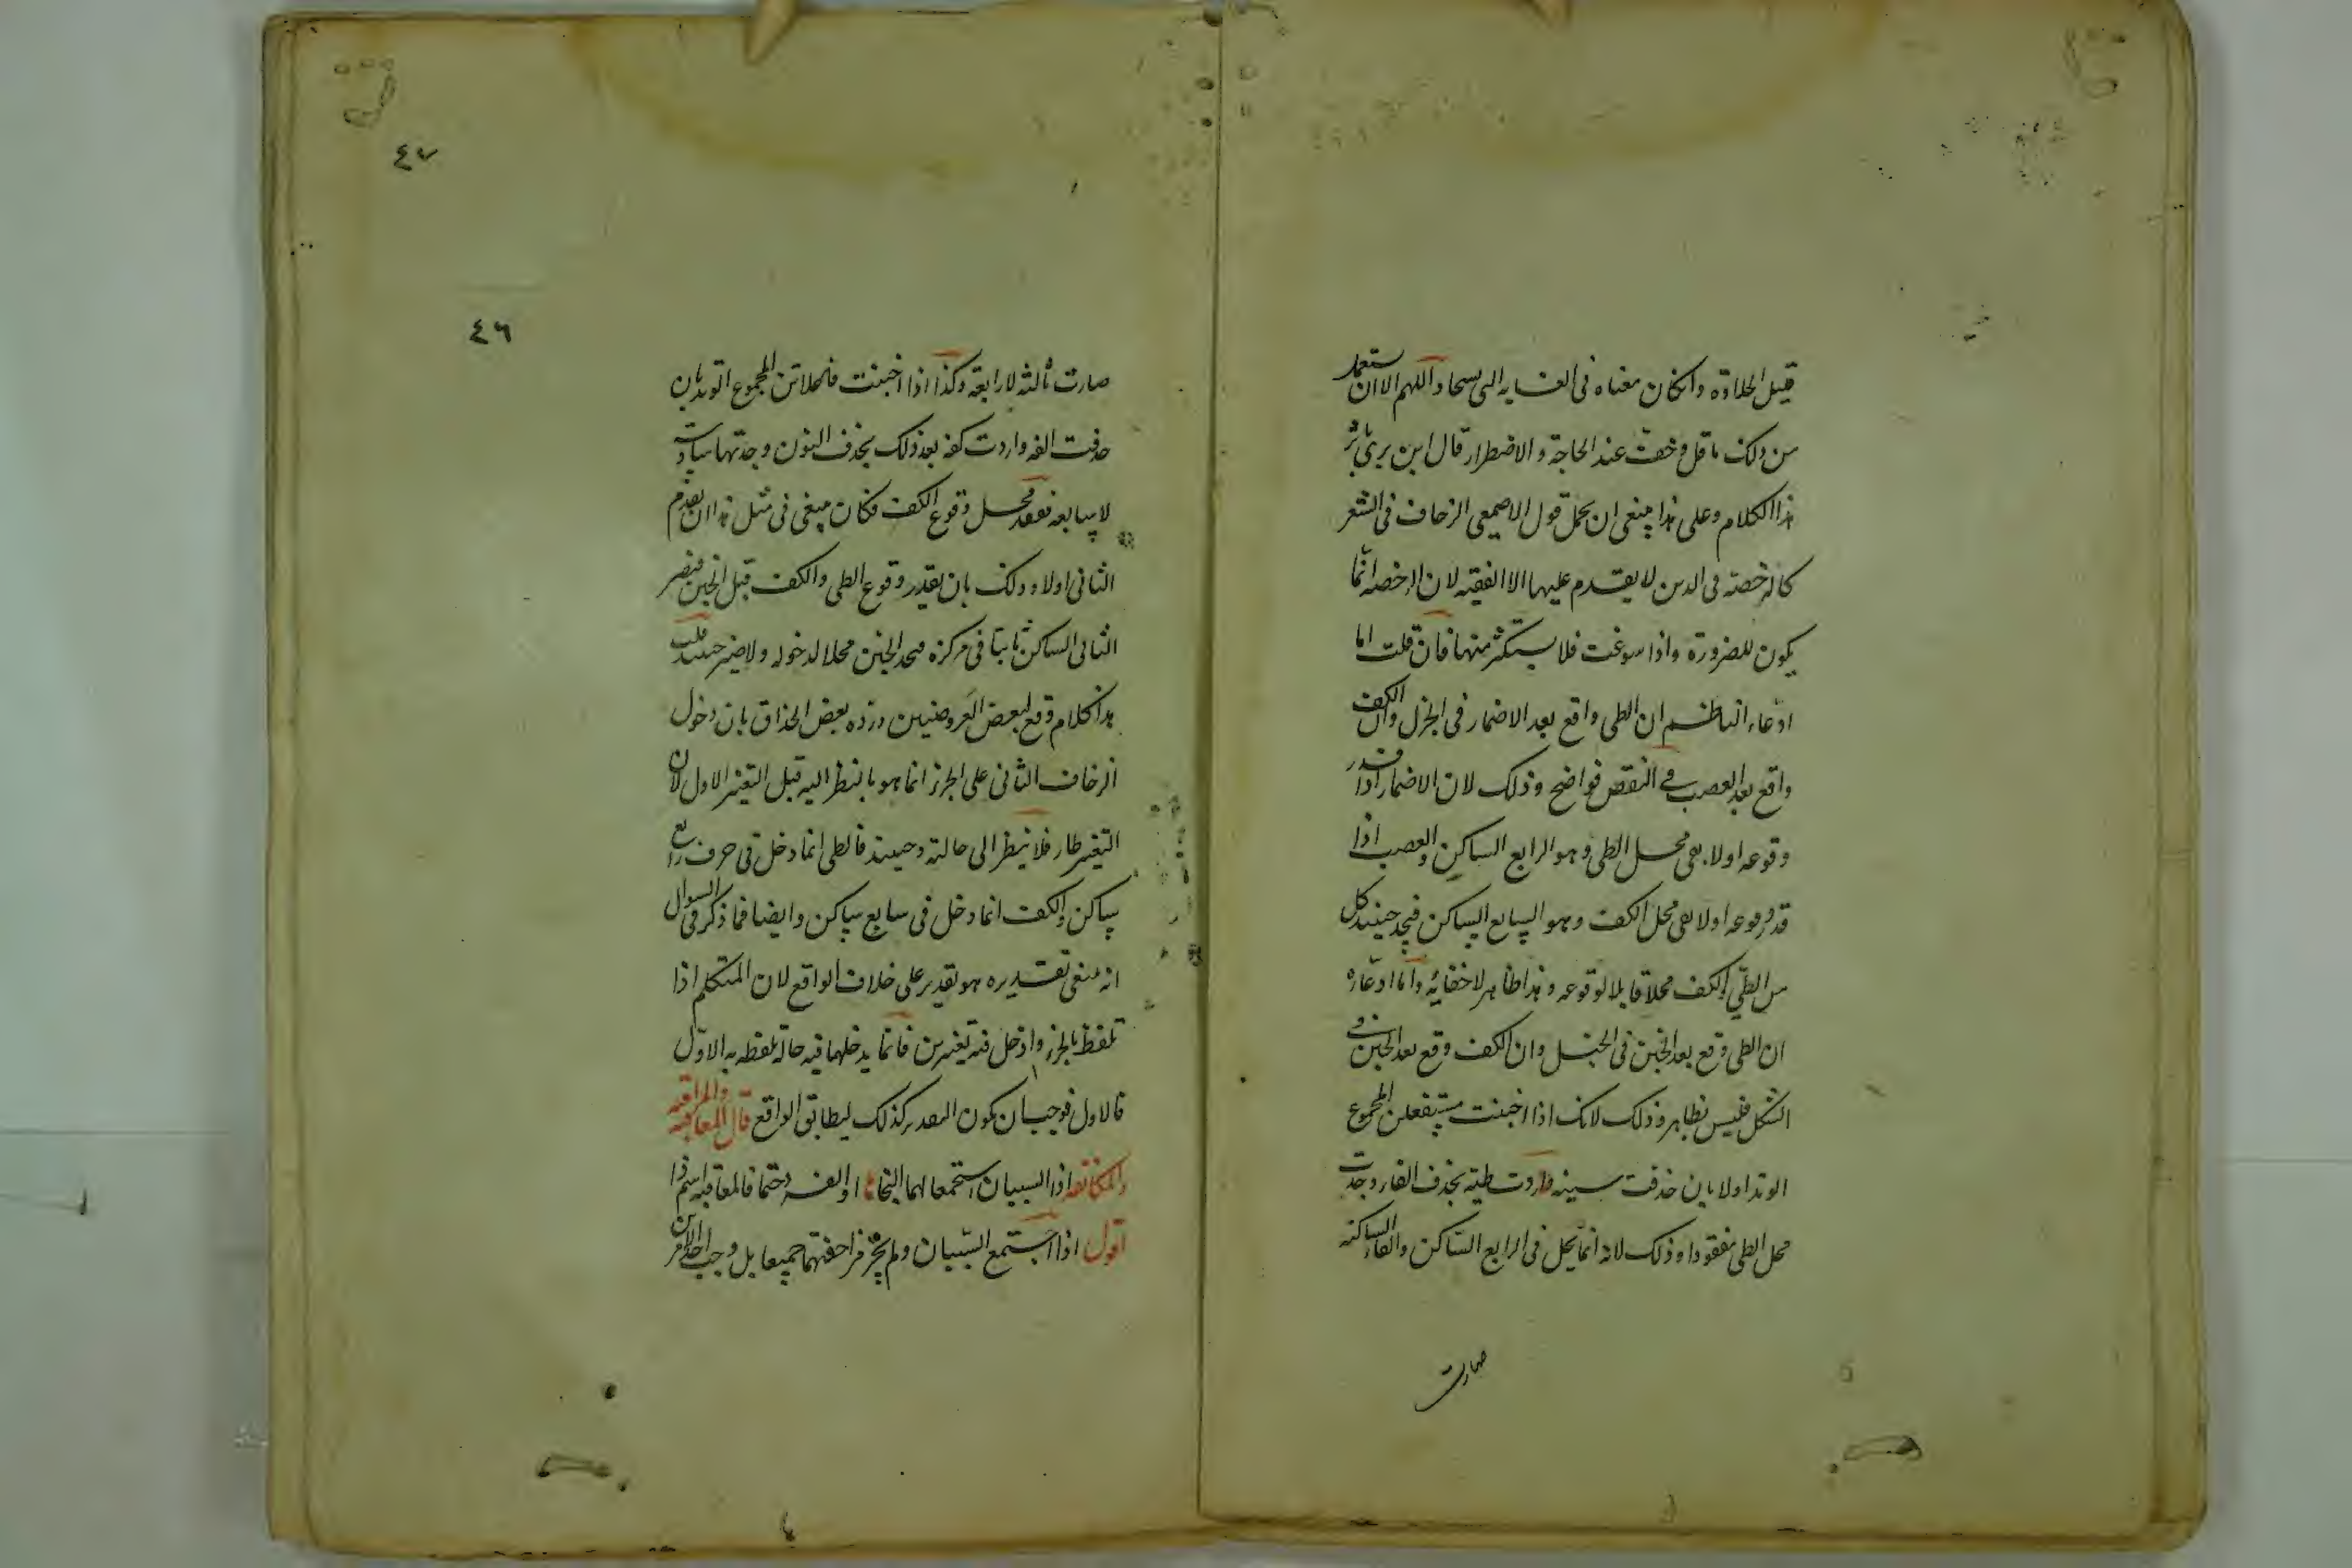 قليل الحلاوة وان كان معناه فى الغاية التى سحاد اللهم الا ان ستعمل
من ذلك ما قل وخف عند الحاجة والاضطرار قال ابن برى باثر
هذا الكلام وعلى هذا ينبغى ان يحمل قول الاصمعى الزحاف فى الشعر
كالرخصة فى الدين لا يقدم عليها الا الفقيه لان الرخصة انما
يكون للضرورة واذا سوغت فلا يستكثر منها فان قلت اما
ادعاء الناظم ان الطى واقع بعد الاضمار فى الجزل وان الكف
واقع بعد العصب فى النقص فواضح وذلك لان الاضمار اذا قدر
وقوعه اولا بقى محل الطى وهو الرابع الساكن والعصب اذا
قدر وقوعه اولا بقى محل الكف وهو السابع الساكن فيجد حينئذ كل
من الطى والكف محلا قابلا لوقوعه وهذا ظاهر لا خفائه واما ادعاؤه
ان الطى وقع بعد الخبن فى الخبل وان الكف وقع بعد الخبن فى
الشكل فليس بظاهر وذلك لانك اذا اخبنت مستفعلن المجموع
الوتد اولا بان حذفت سينه واردت طيه بحذف الفاء وجدت
محل الطى مفقودا وذلك لانه انما يحل فى الرابع الساكن والفاء الساكنة
صارت
٤٧
٤٦
صارت ثالثة لا رابعة وكذا اذا اخبنت فاعلاتن المجموع الوتد بان
حذفت الفه واردت كفه بعد ذلك بحذف النون وجدتها سادسة
لا سابعة ففقد محل وقوع الكف فكان ينبغى فى مثل هذا ان يقدم
الثانى اولا وذلك بان يقدر وقوع الطى والكف قبل الخبن فيصر
الثانى الساكن ثابتا فى مركزه فيجد الخبن محلا لدخوله ولا ضير حينئذ قلت
هذا كلام وقع لبعض العروضيين ورده بعض الحذاق بان دخول
الزحاف الثانى على الجزء انما هو بالنظر اليه قبل التغير الاول لان
التغير طار فلا ينظر الى حالته وحينئذ فالطى انما دخل فى حرف رابع
ساكن والكف انما دخل فى سابع ساكن وايضا فما ذكر فى السوال
انه ينبغى تقديره هو تقدير على خلاف الواقع لان المتكلم اذا
تلفظ بالجزء وادخل فيه تغيرين فانما يدخلهما فيه حالة تلفظه به الاول
فالاول فوجب ان يكون المقدر كذلك ليطابق الواقع قال المعاقبة والمراقبة
والمكانفة اذا السببان استجمعا لهما النجا او الفرد حتما فالمعاقبة اسم ذا
اقول اذا استجمع السببان ولم يجز مزاحفتهما جميعا بل وجب احد الامرين